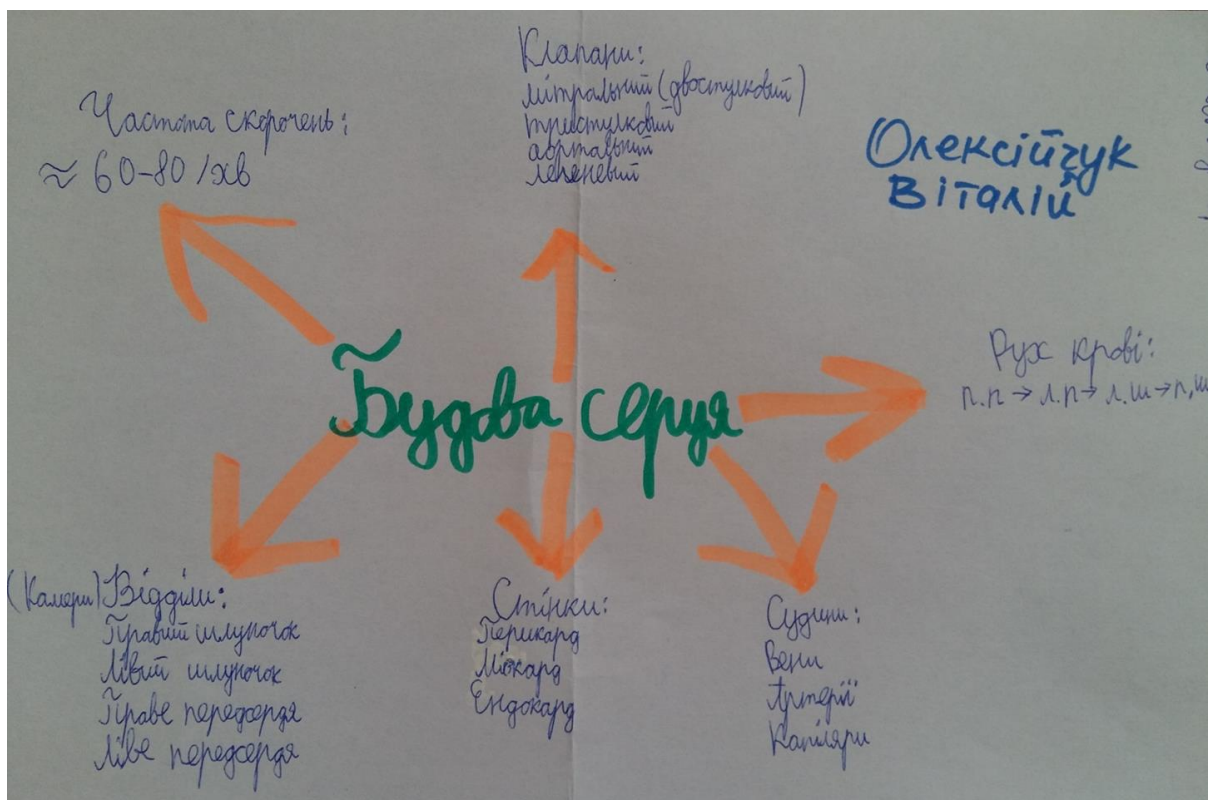 Клапани:
мітральний (двостулковий)
тристулковий
аортальний
легеневий
Частота скорочень:
≈ 60-80 /хв
Олексійчук
Віталій
Будова серця
Рух крові:
п.п → л.п → л.ш → п.ш
(Камери) Відділи:
Правий шлуночок
Лівий шлуночок
Праве передсердя
Ліве передсердя
Стінки:
Перикард
Міокард
Ендокард
Судини:
Вени
Артерії
Капіляри